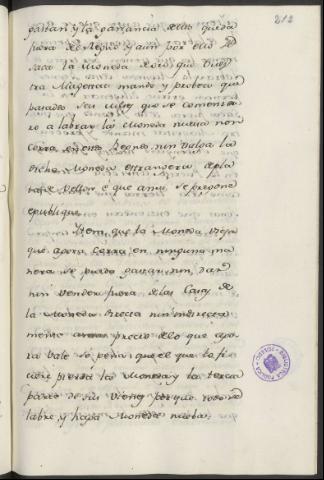 212
passan y la ganancia dellos queda
fuera de Regno y aun por ello se
saca la Moneda dello, que Vues
tra Magestad mande y probea que
pasados seis meses que se comensa
re a labrar la moneda nueva non
corra en este Regno, nin Valga la
dicha Moneda estrangera de pla
ta ni Vellon e que ansi se pregone
e publique.
Item, que la Moneda Vieja
que agora corre en ninguna ma
nera se pueda gastar, nin dar
nin vender fuera de las Casas de
la Moneda directa nin indirecta
mente a mas precio dello que ago
ra vale so pena que el que lo fi
ciere pierda la Moneda y la tercia
parte de sus Vienes porque toda se
labre, y haga Moneda nueba.